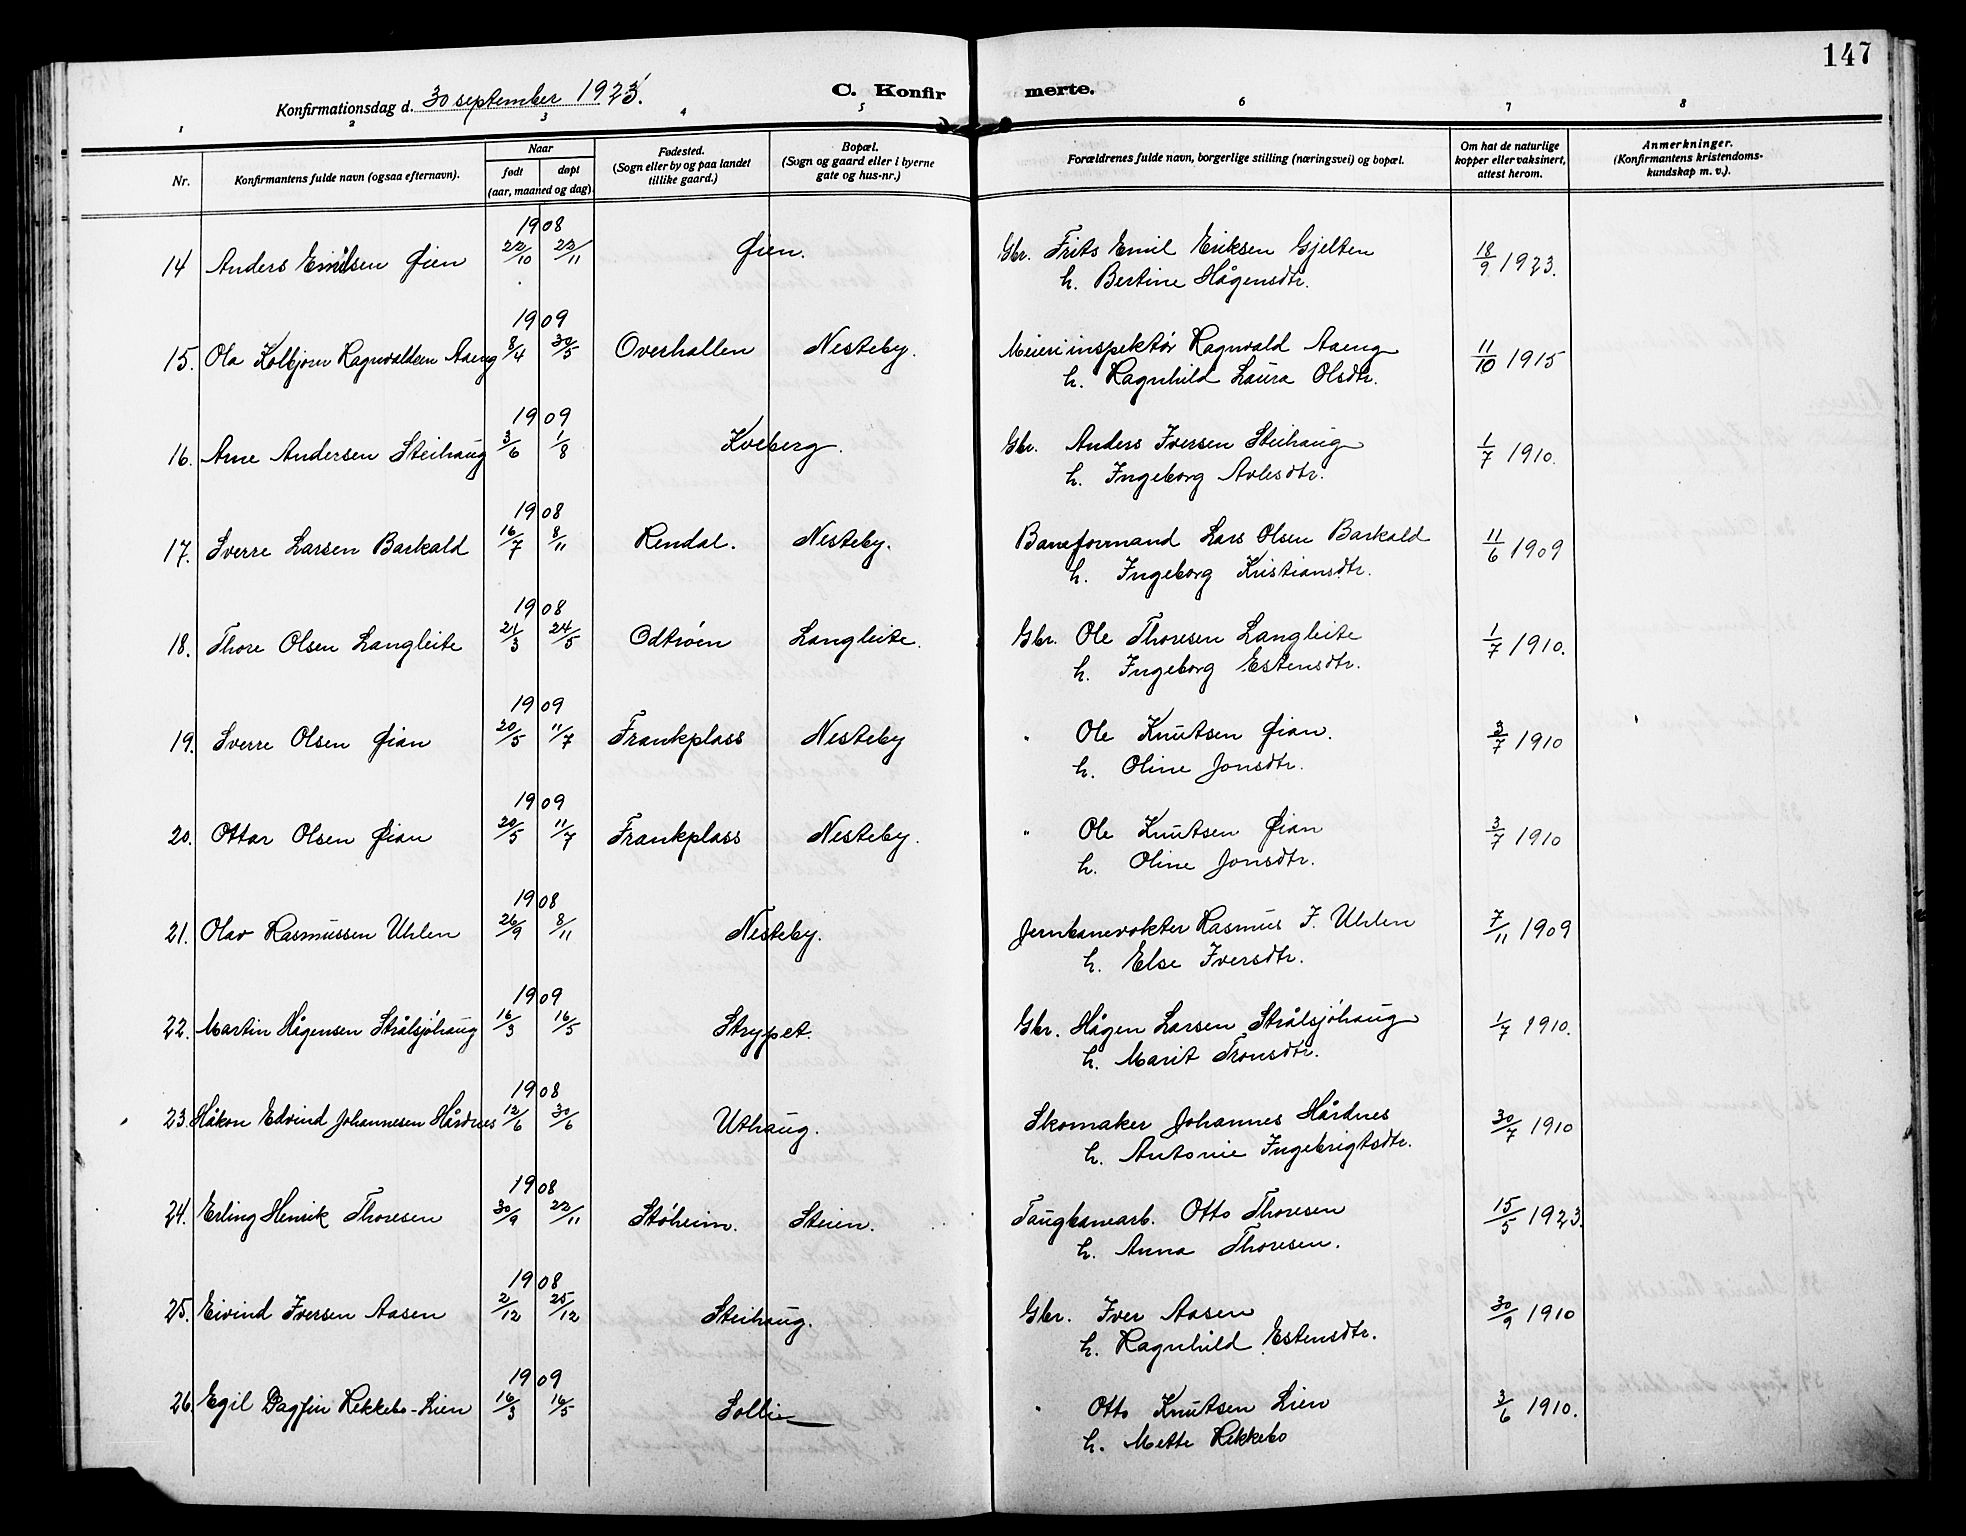 147
Konfirmationsdag d. 30 september 1923. C. Konfirmerte.
1 2 3 4 5 6 7 8
Nr. Konfirmantens fulde navn (ogsaa efternavn). Naar født døpt (aar, maaned og dag) Fødested. (Sogn eller by og paa landet tillike gaard.) Bopæl. (Sogn og gaard eller i byerne gate og hus-nr.) Forældrenes fulde navn, borgerlige stilling (næringsvei) og bopæl. Om hat de naturlige kopper eller vaksinert, attest herom. Anmerkninger. (Konfirmantens kristendoms-kundskap m. v.).
1908
14 Anders Emilsen Øien 22/10 22/11 Øien. Gbr. Frits Emil Eriksen Gjelten 18/9 1923.
h. Bertine Hågensdtr.
1909
15. Ola Kolbjorn Ragnvaldsen Aaeng 8/4 30/5 Overhallen Nesteby. Meieriinspektør Ragnvald Aaeng 11/10 1915
h. Ragnhild Laura Olsdtr.
1909
16. Arne Andersen Steihaug 3/6 1/8 Kveberg. Gbr. Anders Iversen Steihaug 1/7 1910.
h. Ingeborg Avlesdtr.
1908
17. Sverre Larsen Barkald 16/7 8/11 Rendal. Nesteby. Baneformand Lars Olsen Barkald 11/6 1909
h. Ingeborg Kristiansdtr.
1908
18. Thore Olsen Langleite 21/3 24/5 Odtrøen Langleite. Gbr. Ole Thoresen Langleite 1/7 1910.
h. Ingeborg Estensdtr.
1909
19. Sverre Olsen Øian 20/5 11/7 Frankplass Nesteby " Ole Knutsen Øian. 3/7 1910
h. Oline Jonsdtr.
1909
20. Ottar Olsen Øian 20/5 11/7 Frankplass Nesteby. " Ole Knutsen Øian 3/7 1910
h. Oline Jonsdtr.
1908
21. Olav Rasmussen Uhlen 26/9 8/11 Nesteby. Jernbanevokter Rasmus I. Uhlen 7/11 1909
h. Else Iversdtr.
1909
22. Martin Hågensen Strålsjøhaug 16/3 16/5 Strypet. Gbr. Hågen Larsen Strålsjøhaug 1/7 1910.
h. Marit Tronsdtr.
1908
23. Håkon Edvind Johannesen Hårdnes 12/6 30/6 Uthaug. Skomaker Johannes Hårdnes 30/7 1910
h. Antonie Ingebrigtsdtr.
1908
24. Erling Henrik Thoresen 30/9 22/11 Støheim. Steien. Taugbanearb. Otto Thoresen 15/5 1923.
h. Anna Thoresen.
1908
25. Eivind Iversen Aasen 2/12 25/12 Steihaug. Gbr. Iver Aasen 30/9 1910
h. Ragnhild Estensdtr.
1909
26. Egil Dagfin Rekkebo-Lien 16/3 16/5 Sollie " Otto Knutsen Lien 3/6 1910.
h. Mette Rekkebo